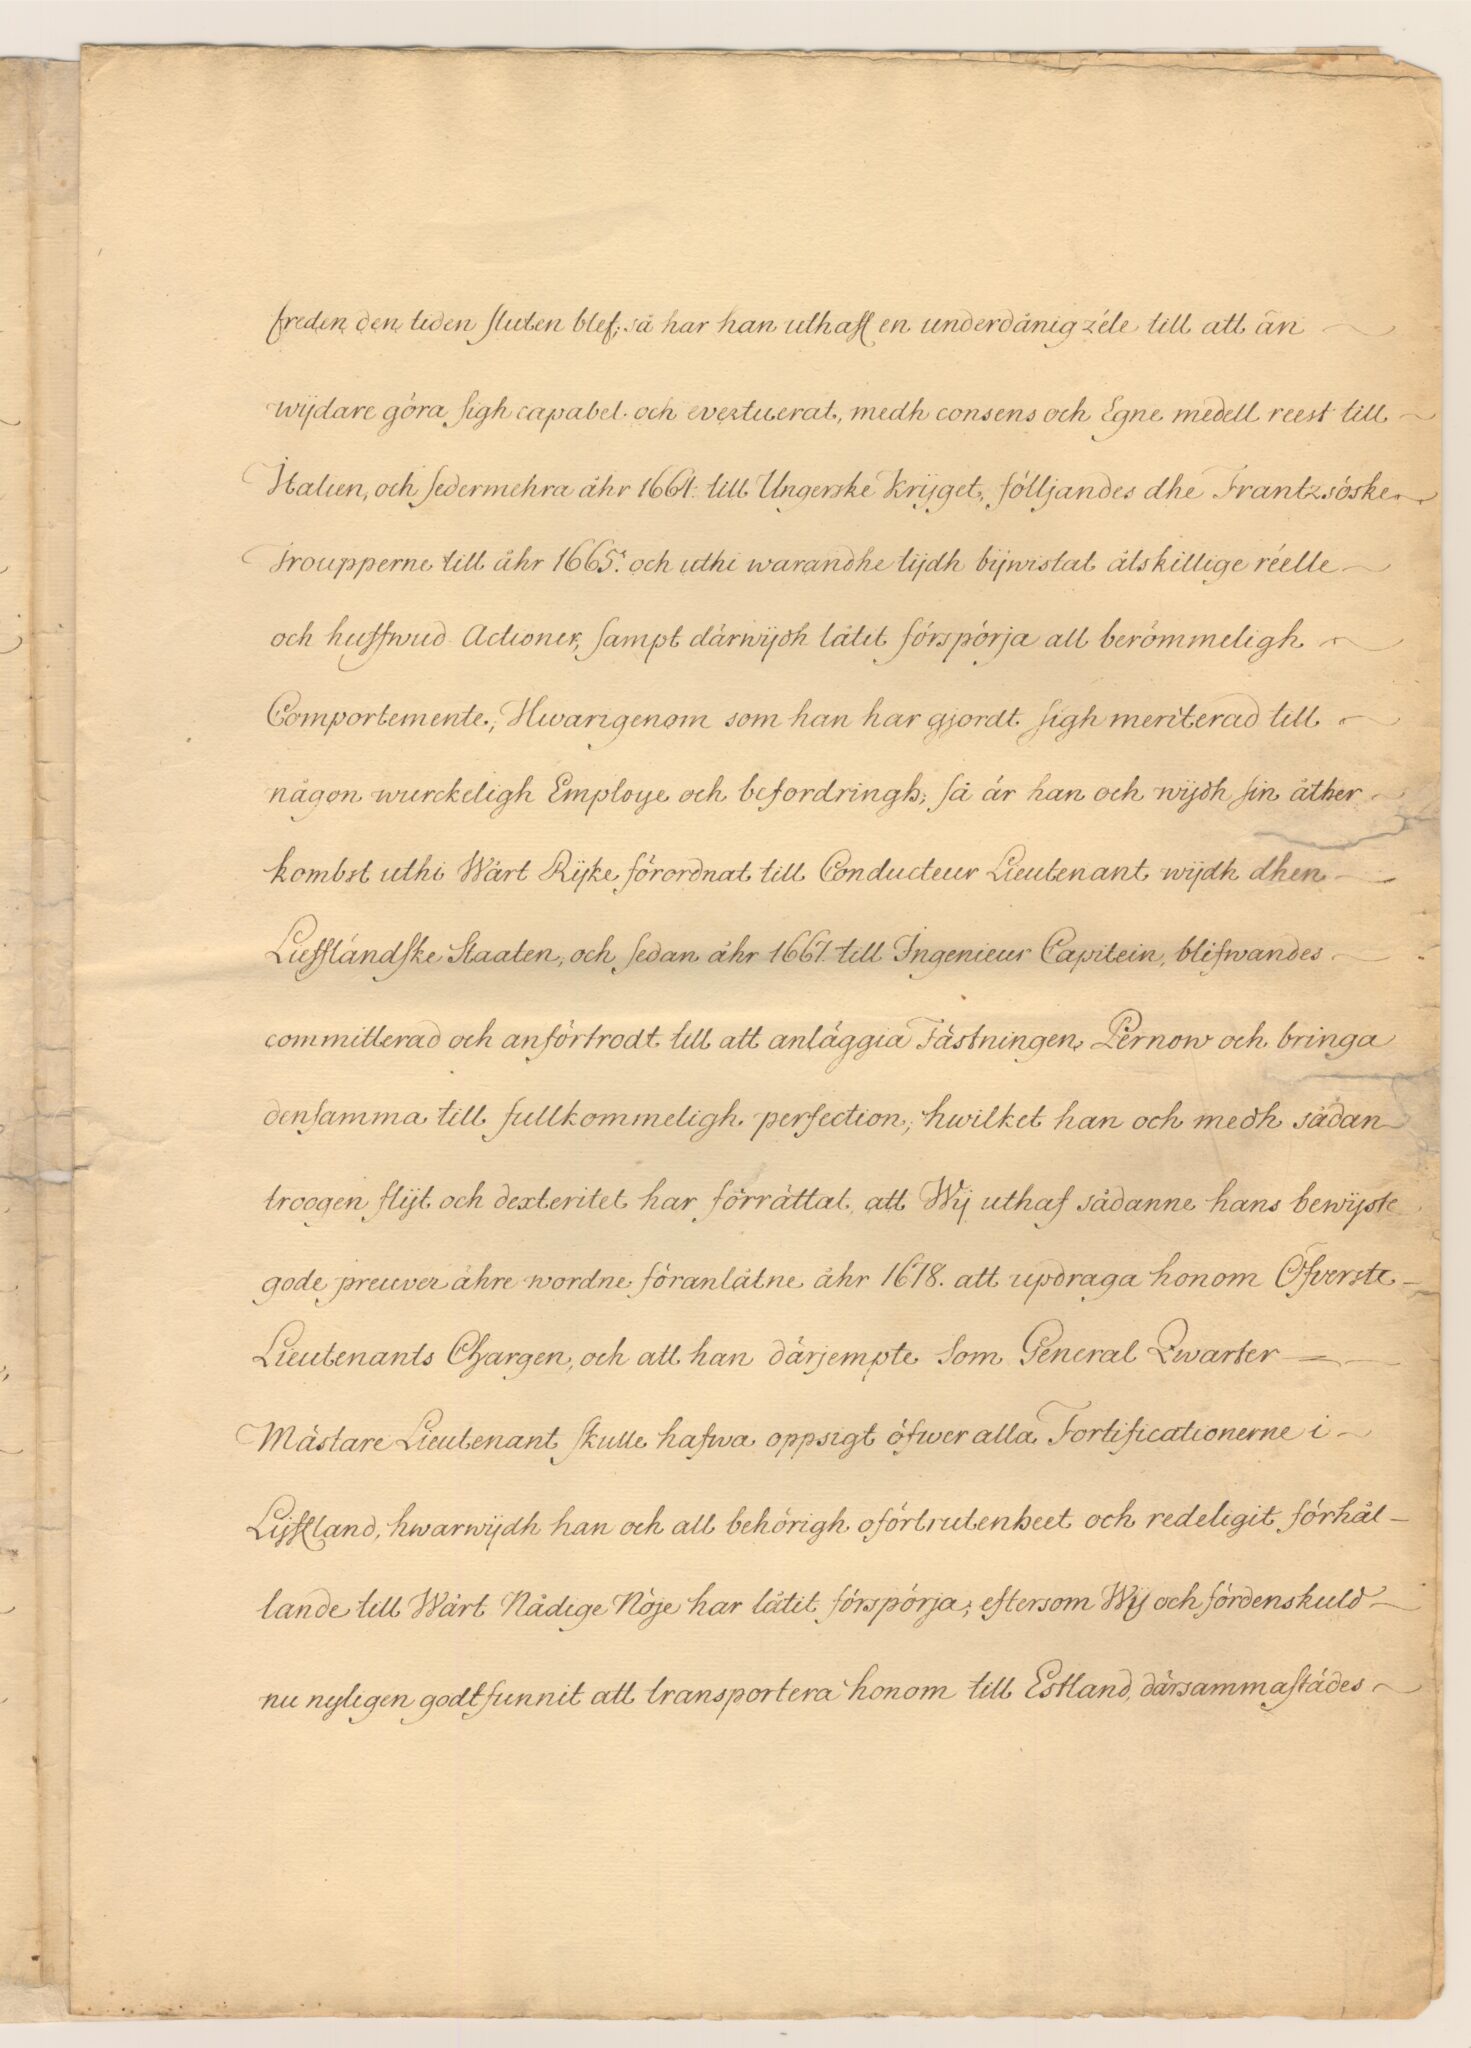 freden den tiden sluten blef; så har han uthaff en underdånig zéle till att än
wijdare göra sigh capabel och evertuerat, medh consens och Egne medell reest till
Italien, och sedermehra åhr 1664 till Ungerske Krijget, fölljandes dhe Frantzsöske
Troupperne till åhr 1665. och uthi warandhe tijdh bijwistat åtskillige réelle
och huffwud Actioner, sampt därwijdh låtit förspörja all berömmeligh
Comportemente, Hwarigenom som han har gjordt sigh meriterad till
någon wurckeligh Employe och befordringh; så är han och wijdh sin åther
kombst uthi Wårt Rijke förordnat till Conducteur Lieutenant wijdh dhen
Liefländske Staaten, och sedan åhr 1667 till Ingenieur Capitein, blifwandes
committerad och anförtrodt till att anläggia Fästningen Pernow och bringa
densamma till fullkommeligh perfection; hwilket han och medh sådan
troogen flijt och dexteritet har förrättat, att Wij uthaf sådanne hans bewijste
gode preuver ähre wordne föranlåtne åhr 1678. att updraga honom Öfverste
Lieutenants Chargen, och att han därjempte som General Qwarter
Mästare Lieutenant skulle hafwa oppsigt öfwer alla Fortificationerne i
Lijffland, hwarwijdh han och all behörigh oförtrutenheet och redeligit förhål-
lande till Wårt Nådige Nöje har låtit förspörja; eftersom Wij och fördenskuld
nu nyligen godtfunnit att transportera honom till Estland, därsammastädes